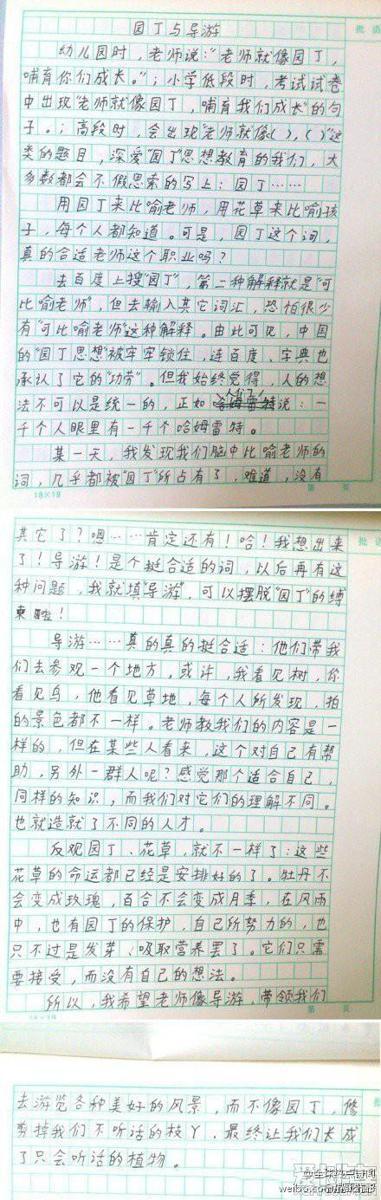 园丁与导游
幼儿园时，老师说：“老师就像园丁，
哺育你们成长。”；小学低段时，考试试卷
中出现“老师就像园丁，哺育我们成长”的句
子。；高段时，会出现“老师就像( )，( )”这
类的题目，深爱“园丁”思想教育的我们，大
多数都会不假思索的写上：园丁……
用园丁来比喻老师，用花草来比喻孩
子，每个人都知道。可是，园丁这个词，
真的合适老师这个职业吗？
去百度上搜“园丁”，第二种解释就是“可
比喻老师”，但去输入其它词汇，恐怕很少
有“可比喻老师”这种解释。由此可见，中国
的“园丁思想”被牢牢锁住，连百度、字典也
承认了它的“功劳”。但我始终觉得，人的想
法不可以是统一的，正如说：一
千个人眼里有一千个哈姆雷特。
某一天，我发现我们脑中比喻老师的
词，几乎都被“园丁”所占有了，难道，没有
18×19
第 页
其它了？嗯……肯定还有！哈！我想出来
了！导游！是个挺合适的词，以后再有这
种问题，我就填“导游”，可以摆脱“园丁”的缚
束啦！
导游……真的真的挺合适：他们带我
们去参观一个地方，或许，我看见树，你
看见鸟，他看见草地，每个人所发现、拍
的景色都不一样。老师教我们的内容是一
样的，但在某些人看来，这个对自己有帮
助，另外一群人呢？感觉那个适合自己，
同样的知识，而我们对它们的理解不同。
也就造就了不同的人才。
反观园丁、花草，就不一样了：这些
花草的命运都已经是安排好的了。牡丹不
会变成玫瑰，百合不会变成月季，在风雨
中，也有园丁的保护，自己所努力的，也
只不过是发芽、吸取营养罢了。它们只需
要接受，而没有自己的想法。
所以，我希望老师像导游，带领我们
第 页
去游览各种美好的风景，而不像园丁，修
剪掉我们不听话的枝丫，最终让我们长成
了只会听话的植物。